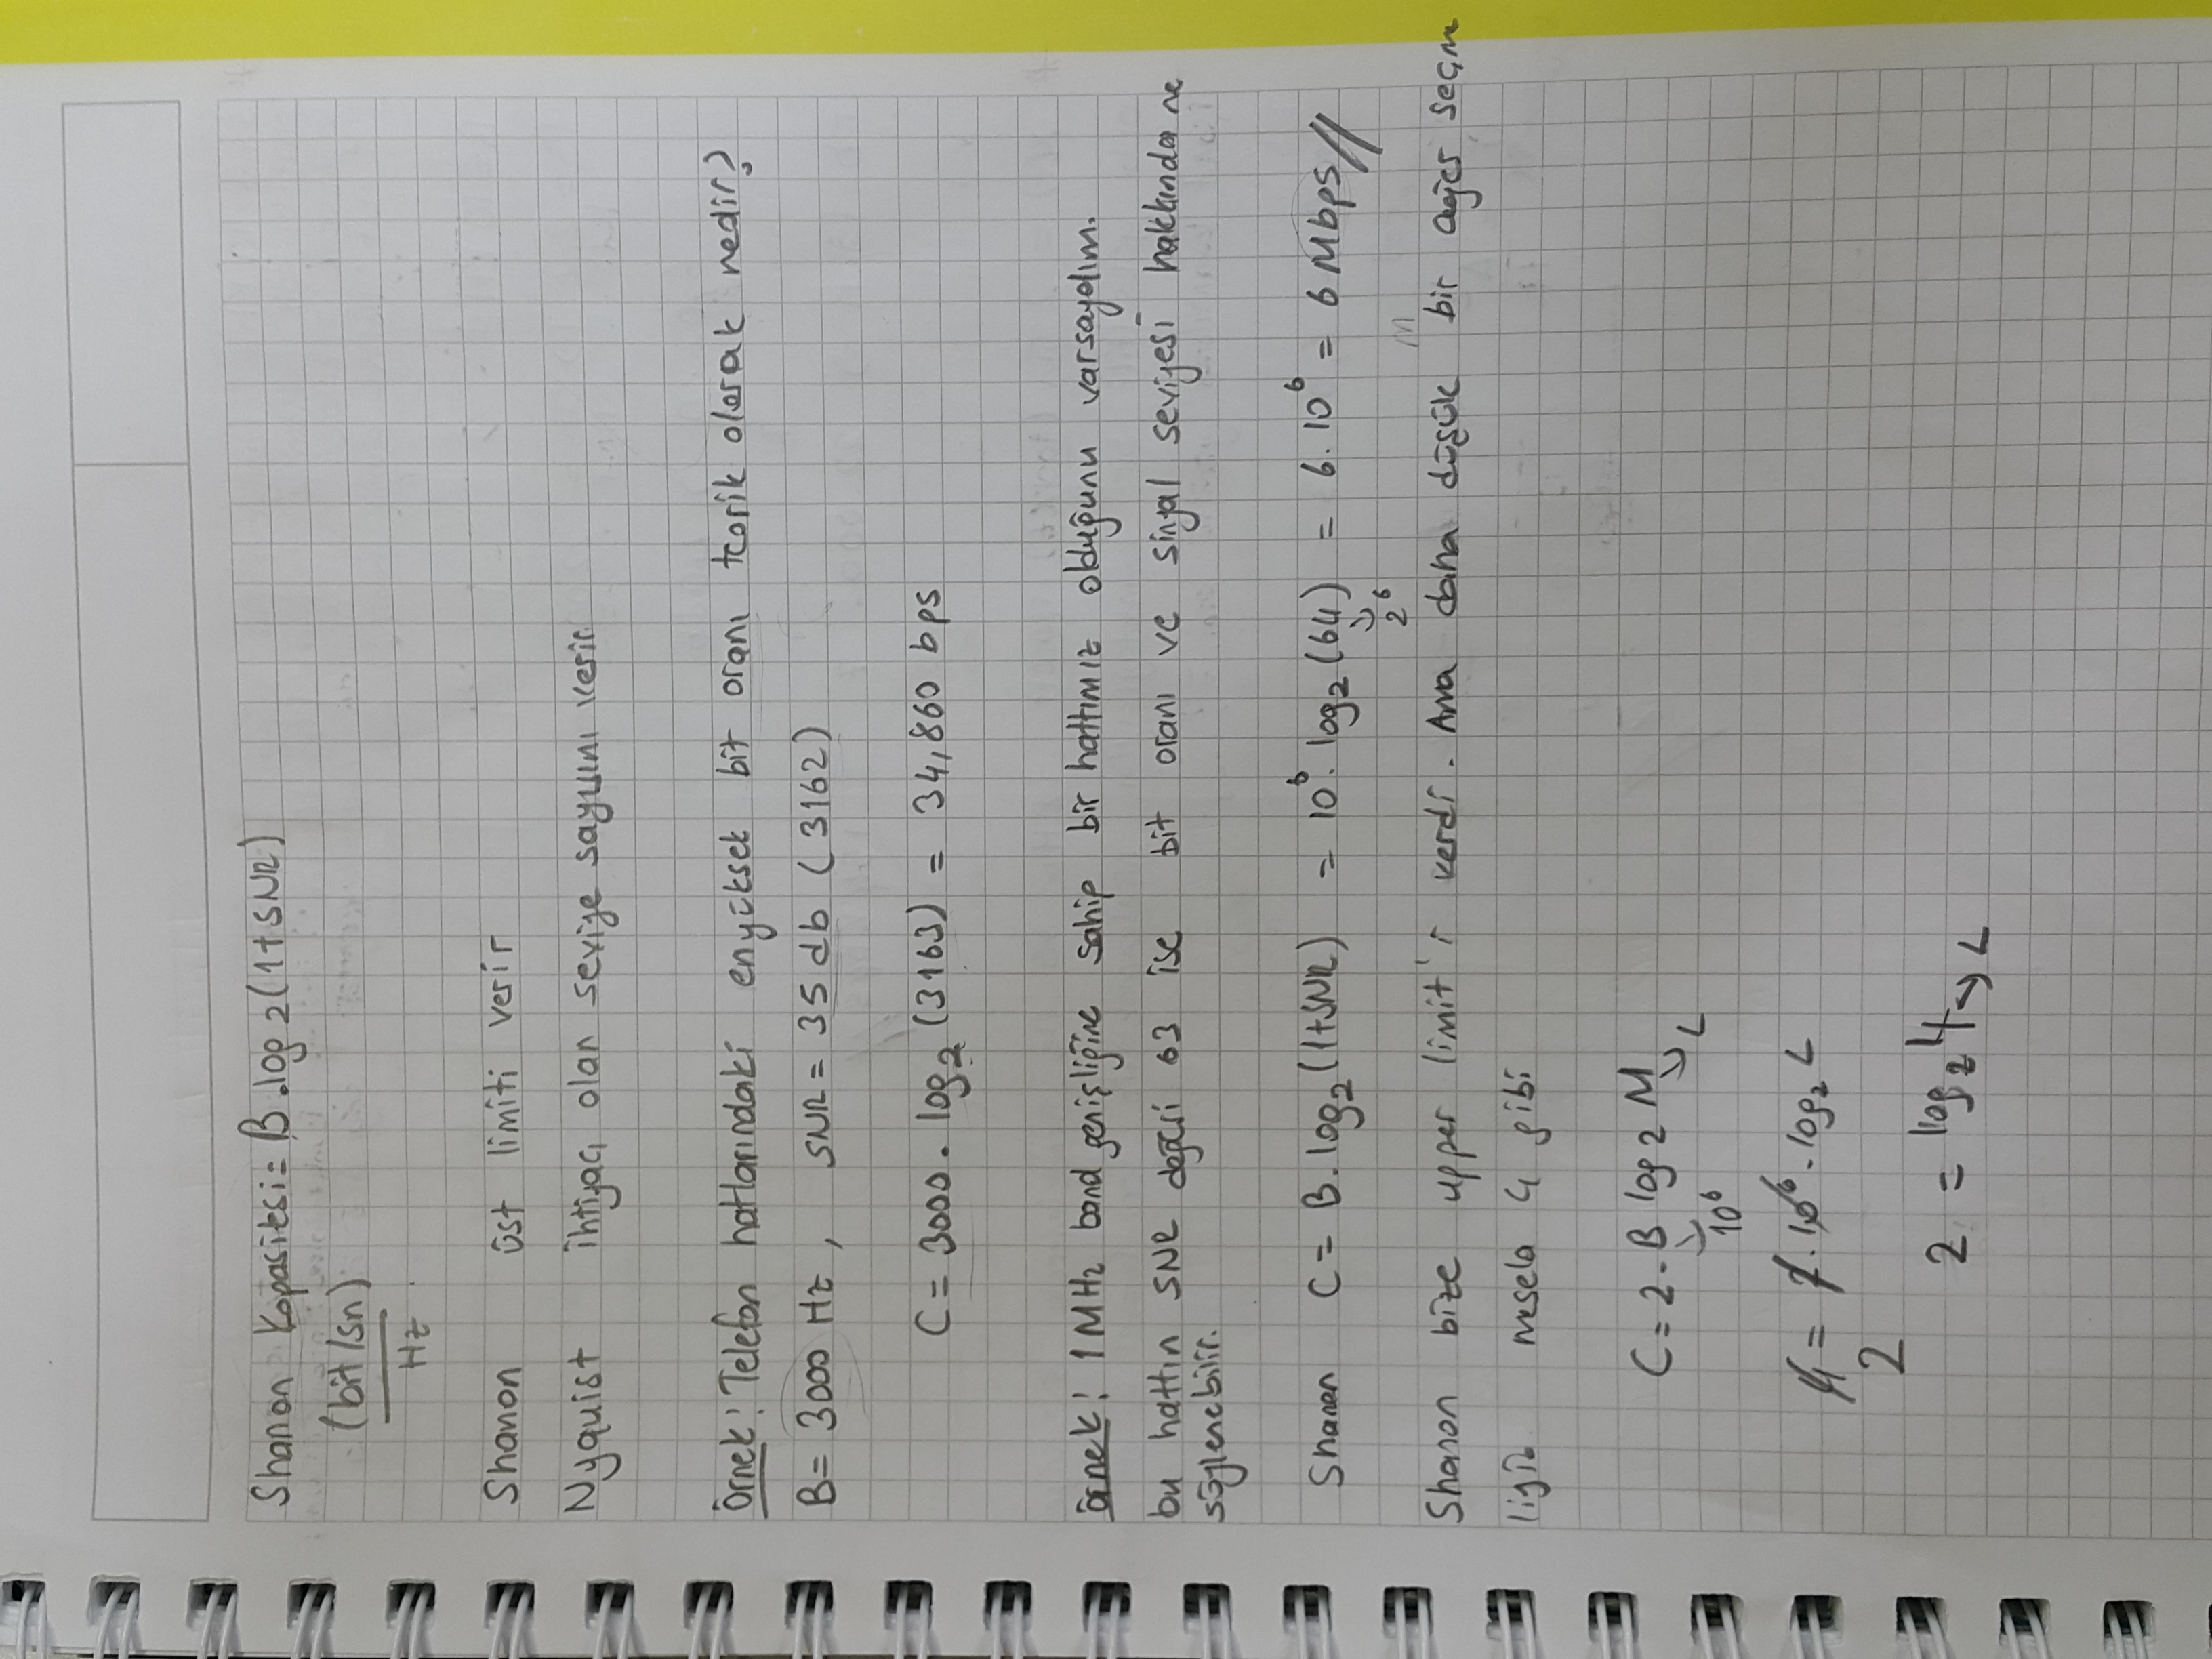 Shanon Kapasitesi = B.log2(1+SNR)
(bit/sn)
Hz
Shanon üst limiti verir
Nyquist ihtiyacı olan seviye sayısını verir
örnek: Telefon hatlarındaki enyüksek bit oranı teorik olarak nedir?
B = 3000 Hz, SNR = 35 db (3162)
C = 3000 . log₂ (3163) = 34,860 bps
örnek: 1 MHz band genişliğine sahip bir hattımız olduğunu varsayalım.
bu hattın SNR değeri 63 ise bit oranı ve sinyal seviyesi hakkında ne
söylenebilir.
Shanon C = B. log₂ (1+SNR) = 10⁶. log₂ (64) = 6. 10⁶ = 6 Mbps //
↘ 2⁶
M
Shanon bize upper limit'i verdi. Ama daha düşük bir seçm
mesela 4 gibi
C = 2. B log2 M
↘ 10⁶ ↘ L
4 = 2. 10⁶ . log₂ L
2
2 = log₂ 4 ↘ L